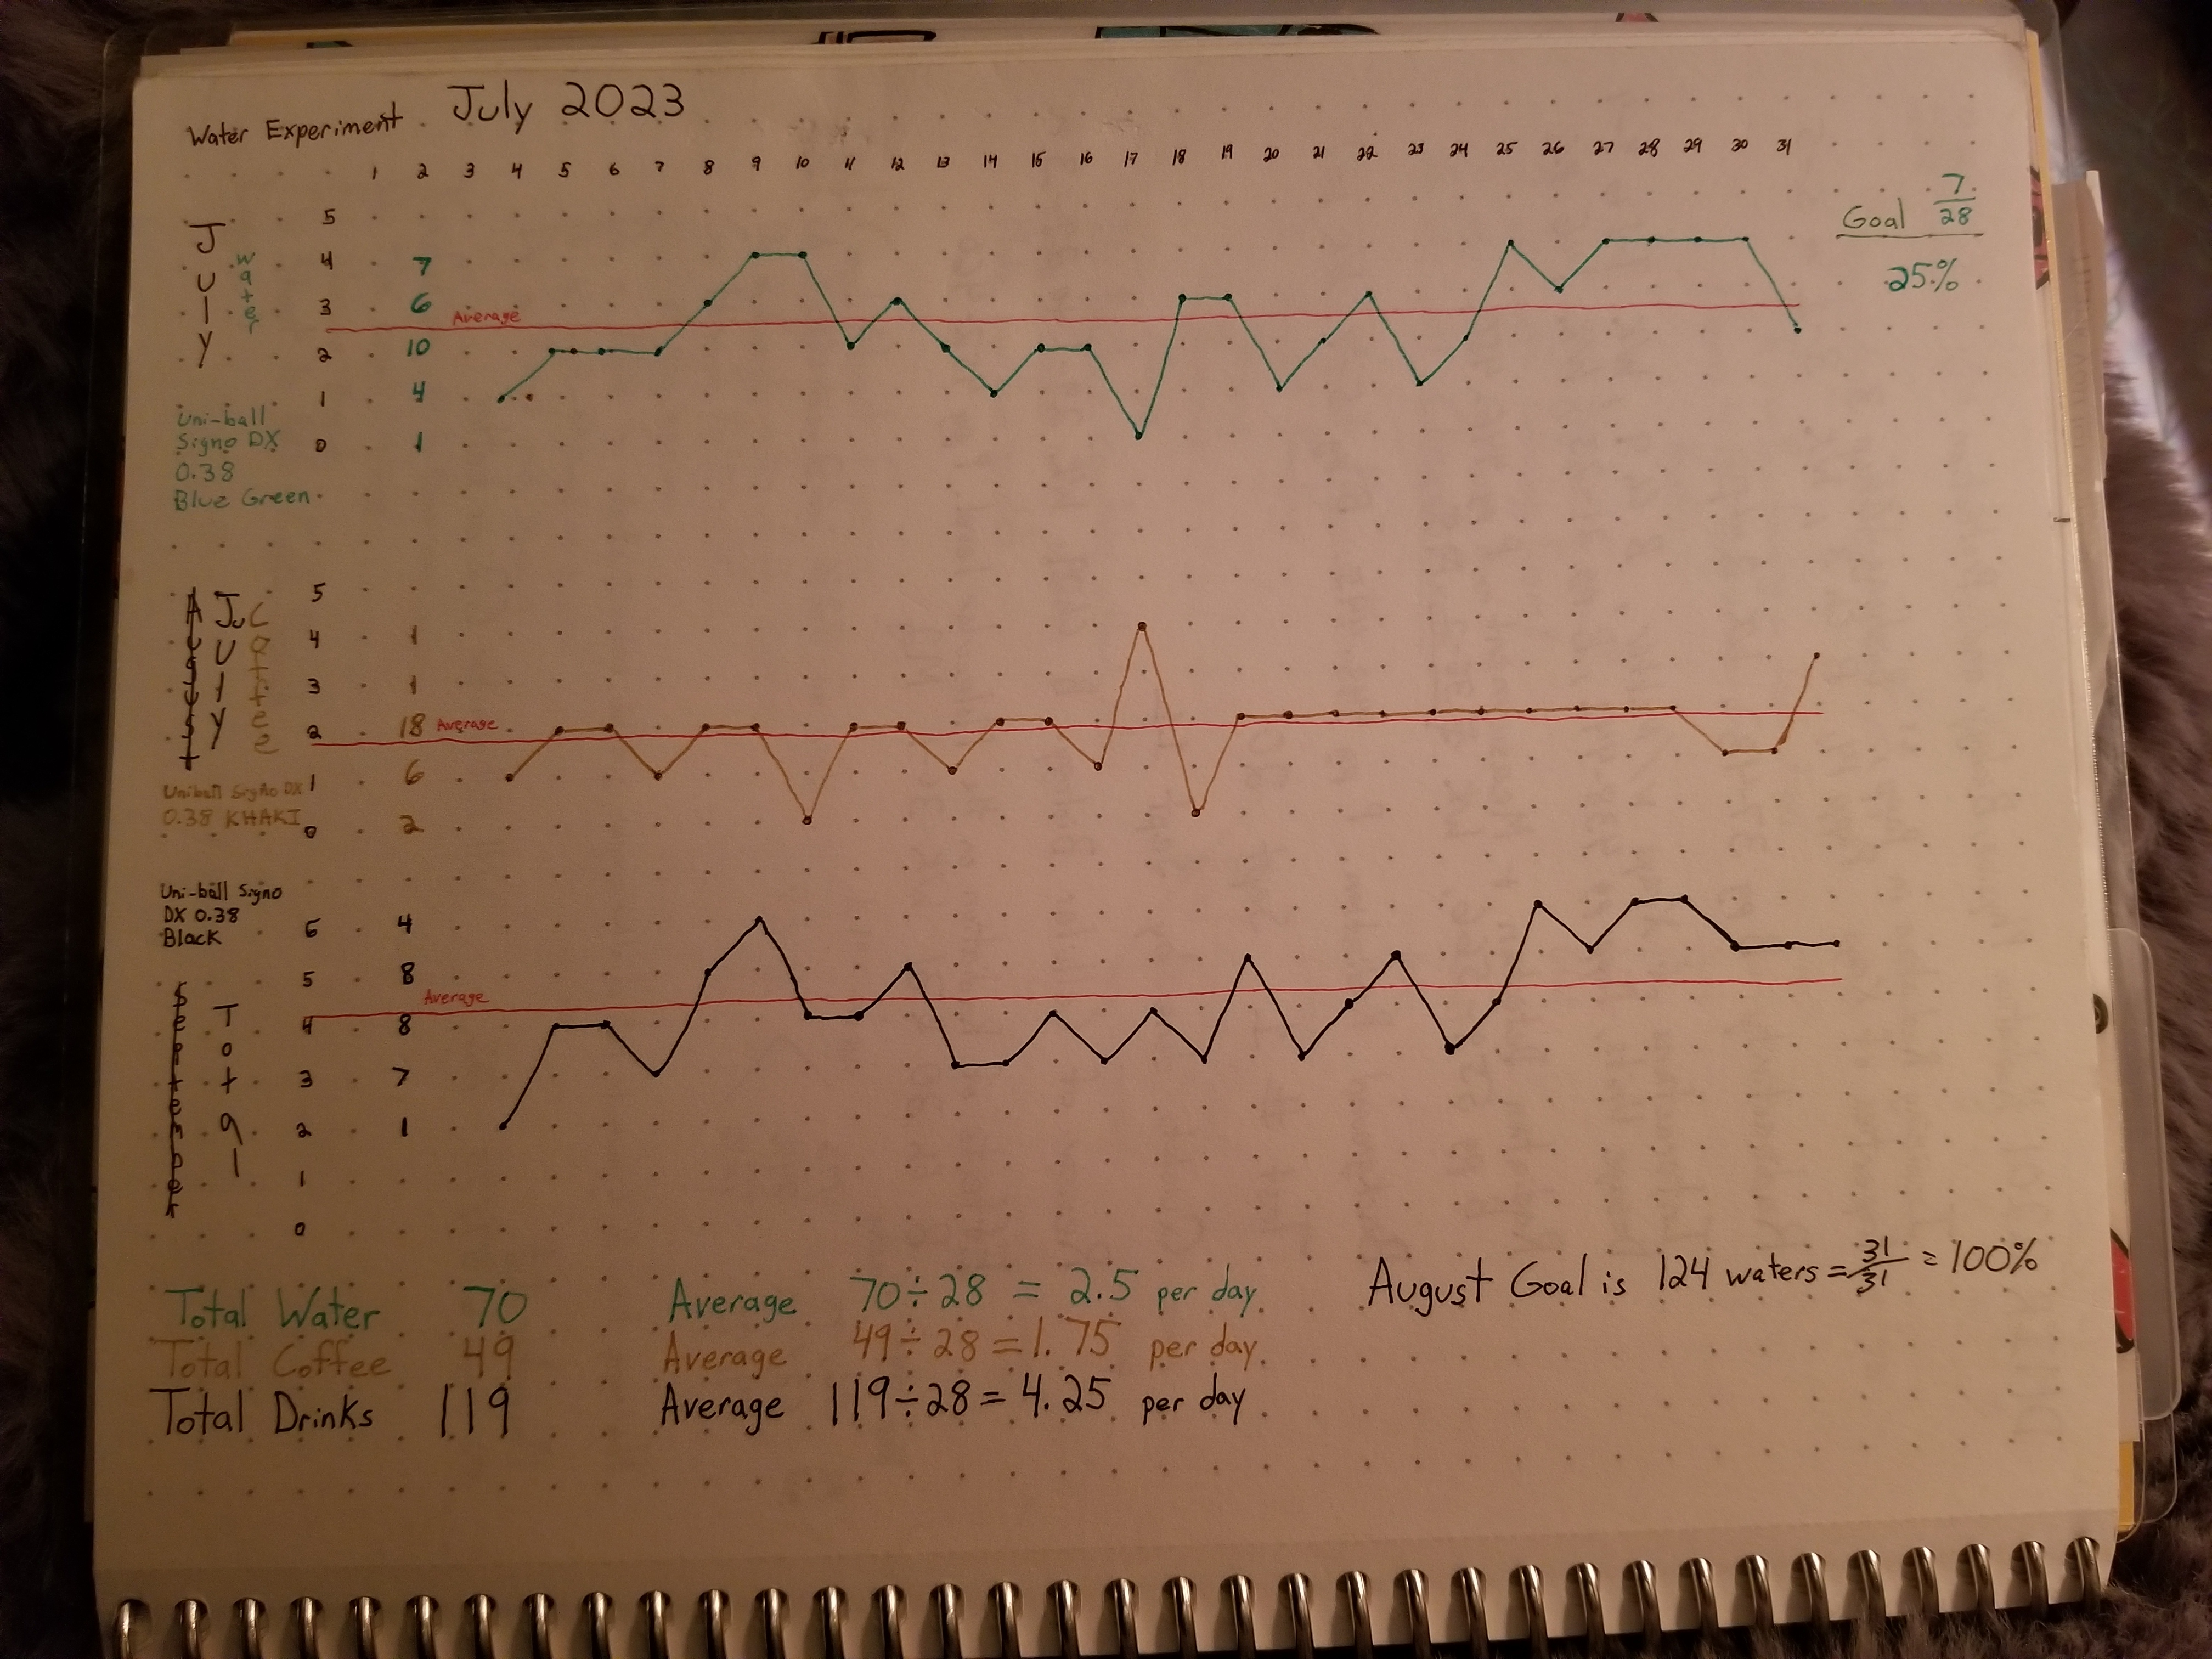 Water Experiment July 2023
1 2 3 4 5 6 7 8 9 10 11 12 13 14 15 16 17 18 19 20 21 22 23 24 25 26 27 28 29 30 31
July
Water
5
4 7
3 6
2 10
1 4
0 1
Average
Goal 7/28
25%
Uni-ball
Signo DX
0.38
Blue Green
August
July
Coffee
5
4 1
3 1
2 18 Average
1 6
0 2
Uniball Signo DX
0.38 KHAKI
Uni-ball Signo
DX 0.38
Black
September
Total
6 4
5 8
Average
4 8
3 7
2 1
1
0
Total Water 70 Average 70÷28 = 2.5 per day
Total Coffee 49 Average 49÷28=1.75 per day
Total Drinks 119 Average 119÷28=4.25 per day
August Goal is 124 waters = 31/31 = 100%